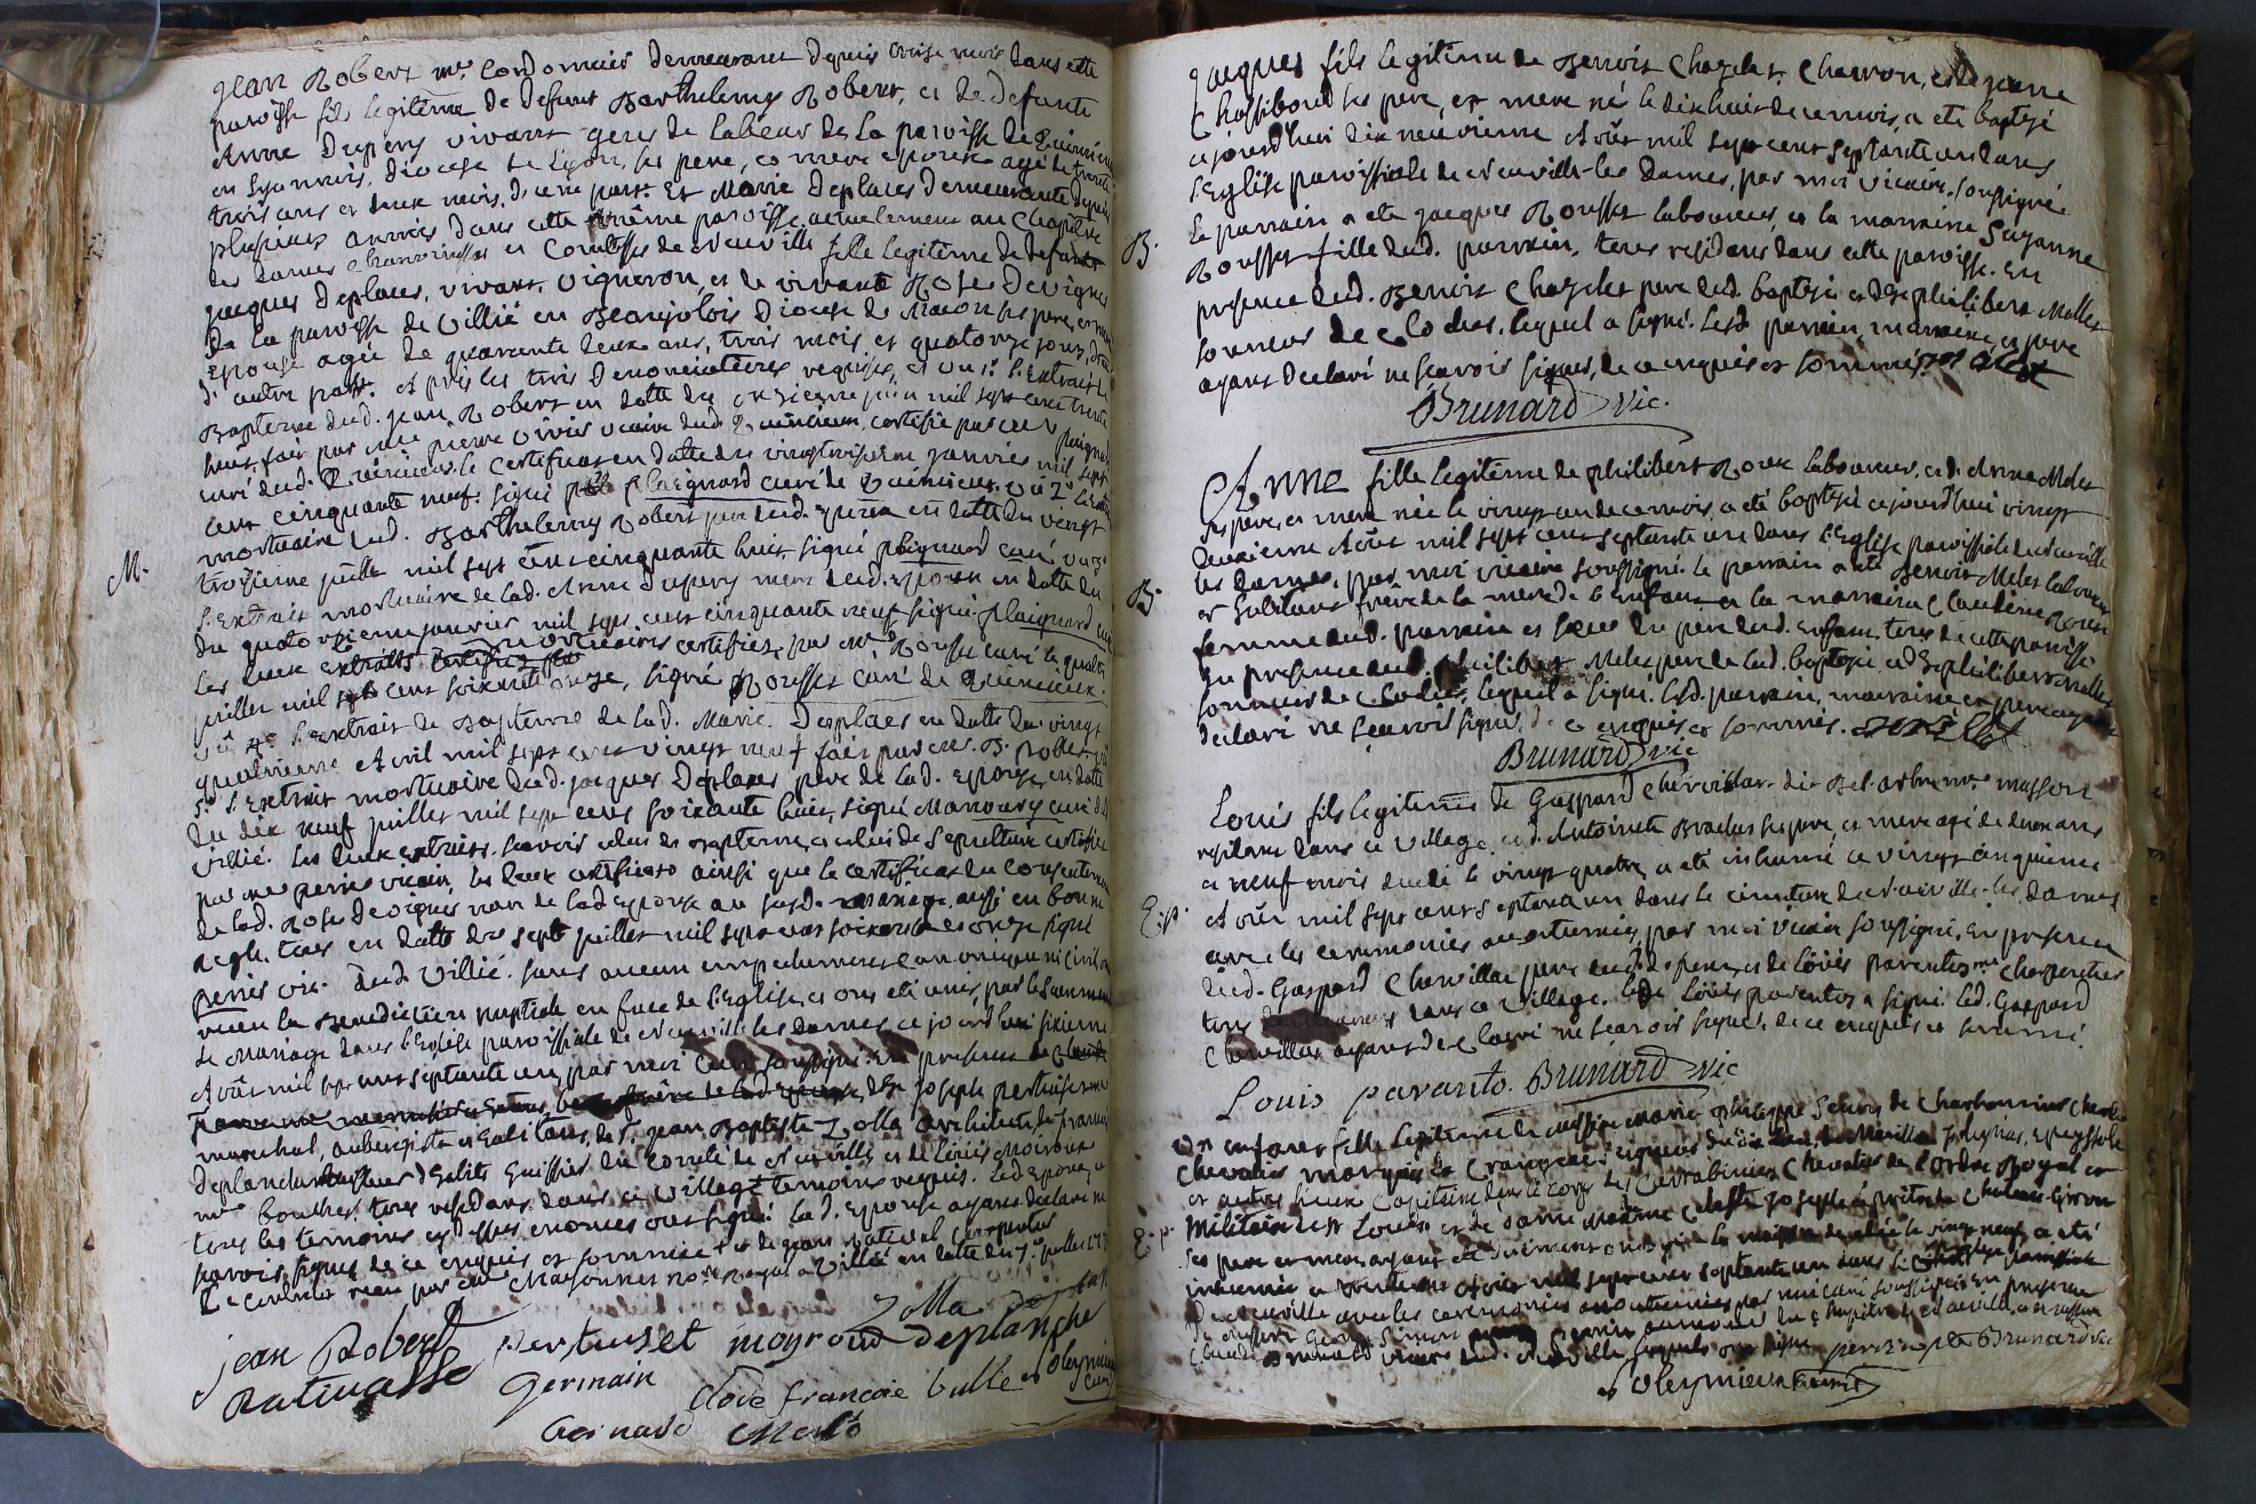 Jean Robert me. Cordonnier demeurant depuis onze mois dans cette
paroisse fils legitime de defunt Barthelemy Robert, et de defunte
Anne Dupery vivants gens de labeur de la paroisse de Quincieux
en Lyonnois, diocese de Lyon, ses pere, et mere epoux agé de trente
trois ans et deux mois, d'une part. Et Marie Deplaces demeurante depuis
plusieurs années dans cette même paroisse actuelement au Chapitre
des dames chanoinesses et Comtesses de Neuville fille legitime de defunt
Jacques Deplaces, vivant, vigneron, et de vivante Rose Devignes
de la paroisse de Villié en Beaujolois Diocese de Macon ses pere, et mere
epouse agée de quarante deux ans, trois mois et quatorze jours,
d'autre part. Après les trois denonciations requises, et vu 1° l'extrait de
Bapteme dud. Jean Robert en datte du onzieme juin mil sept cent trente
huit, fait par me pierre vicaire dud. Quincieux, certifié par
curé dud. Quincieux le certificat en datte du vingt troisieme janvier mil sept
cent cinquante neuf. signé Plaignard curé de Quincieux. vû 2° l'extrait
mortuaire dud. Barthelemy Robert pere dud. epoux en datte du vingt
troisieme juillet mil sept cent cinquante huit, signé Plaignard curé vu 3°
l'extrait mortuaire de lad. Anne Dupery mere dud. epoux en datte du
du quatorzieme janvier mil sept cent cinquante neuf signé. Plaignard curé
les deux extraits mortuaires certifiés, par Mr. Rousset curé le quatre
juillet mil sept cent soixante onze, signé Rousset curé de Quincieux.
vû 4° l'extrait de Bapteme de lad. Marie Deplaces en datte du vingt
quatrieme Avril mil sept cent vingt neuf fait par
5° l'extrait mortuaire dud. Jacques Deplaces pere de lad. epouse, en datte
du dix neuf juillet mil sept cent soixante huit, signé Manoury curé de
Villié. les deux extraits, sçavoir celui de Bapteme, et celui de Sepulture certifiés
par me perrier vicaire, les deux certificats ainsi que le certificat du consentement
de lad. Rose Devignes mere de lad epouse au susd. mariage, aussi en bonne
regle. tous en datte du sept juillet mil sept cent soixante et onze signé
perrier vic. dud. Villié. sans aucun empechement canonique ni civil, ont
receu la Benediction nuptiale en face de l'Eglise, et ont eté unis, par le Sacrement
de Mariage dans l'Eglise paroissiale de Neuville les dames ce jourd'hui sixieme
Août mil sept cent septante un, par moi Curé soussigné. en presence
de joseph pertuiset me
marechal, aubergiste et habitant, de Sr. Jean Baptiste Zolla Architecte, de françois
Deplanche huissier du Comté de Neuville, et de Loüis Moiroux
me boucher, tous residans dans ce village temoins requis. led epoux, et
tous les temoins cy dessus enoncés ont signé. lad. Epouse ayant declaré ne
sçavoir signer, de ce enquise et sommée
le contrat receu par me Mayonnet nore Royal a Villié en datte du 7e juillet
M.
Jean Robert pertuiset moyroud Zolla deplanche
Ratinasse Germain Clode francoie bulle Poleymieux curé
Merlo

B.
Jacques fils legitime de Benoit Chazelet Charron, et de jeanne
Chassiboud ses pere, et mere né le dix huit de ce mois, a eté baptizé
cejourd'hui dix neuvieme Août mil sept cent septante un dans
l'Eglise paroissiale de Neuville-les Dames, par moi vicaire soussigné.
le parrain a eté jacques Rousset laboureur, et la marraine Suzanne
Rousset fille dud. parrain, tous residans dans cette paroisse. en
presence dud. Benoit Chazelet pere dud. baptizé et de philibert Mallet
sonneur de Cloches, lequel a signé. lesd. parrain, marraine, et pere
ayant declaré ne sçavoir signer, de ce enquis et sommés.
Brunard vic.
B.
Anne fille legitime de philibert Roux laboureur, et d'Anne Melet
ses pere, et mere née le vingt un de ce mois, a eté baptizée cejourd'hui vingt
deuxieme Août mil sept cent septante un dans l'Eglise paroissiale de Neuville
les Dames, par moi vicaire soussigné. le parrain a eté Benoit Melet laboureur
et habitant frere de la mere de l'enfant et la marraine Claudine Roux
femme dud. parrain et soeur du pere dud. enfant. tous de cette paroisse
en presence dud. philibert Melet pere de lad. baptizée, et de philibert Mallet
sonneur de Cloches, lequel a signé. lesd. parrain, marraine et pere ayant
declaré ne sçavoir signer, de ce enquis et sommés.
Brunard vic
E.p.
Louis fils legitime de Gaspard Chervillar dit Bel-arbre me masson
residant dans ce village, et d'Antoinette Brachet ses pere, et mere agé de deux ans
et neuf mois decedé le vingt quatre, a eté inhumé ce vingt cinquieme
Août mil sept cent septante un dans le cimetiere de Neuville-les dames
avec les ceremonies accoutumées, par moi vicaire soussigné. en presence
dud. Gaspard Chervillar pere dud. defunt, et de Loüis parentos me Charpentier
tous dans ce village. led. Loüis parentos a signé. led. Gaspard
Chervillar ayant declaré ne sçavoir signer, de ce enquis et sommé.
Louis paranto. Brunard vic
E.p.
Un enfant fille legitime de messire Marie philippe
Chevalier marquis de
et autres lieux Capitaine dans le corps des Carabiniers Chevalier de l'ordre Royal et
Militaire de St Louis, et de dame
ses pere et mere, ayant eté a la maison le vingt neuf, a eté
inhumée ce trentieme Août mil sept cent septante un dans l'Eglise paroissiale
de Neuville avec les ceremonies accoutumées, par moi curé soussigné. en presence
de messire Simon perrier aumonier du Chapitre de Neuville, et de messire
Claude Brunard vicaire dud. Neuville, lesquels ont signé. perrier ptre Brunard vic
Poleymieux curé